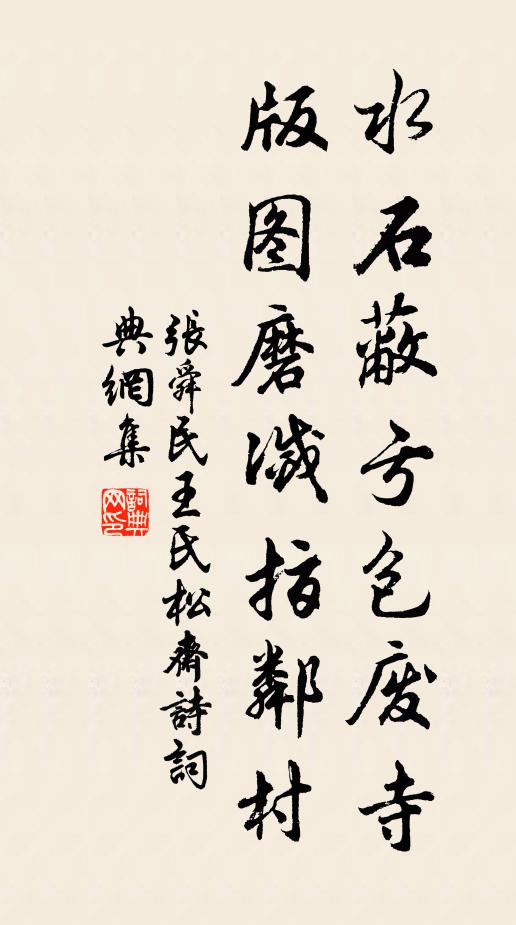 水石蔽亏包废寺
版图磨滅指鄰村
張舜民王氏松齋詩詞
典網集
詞典网印